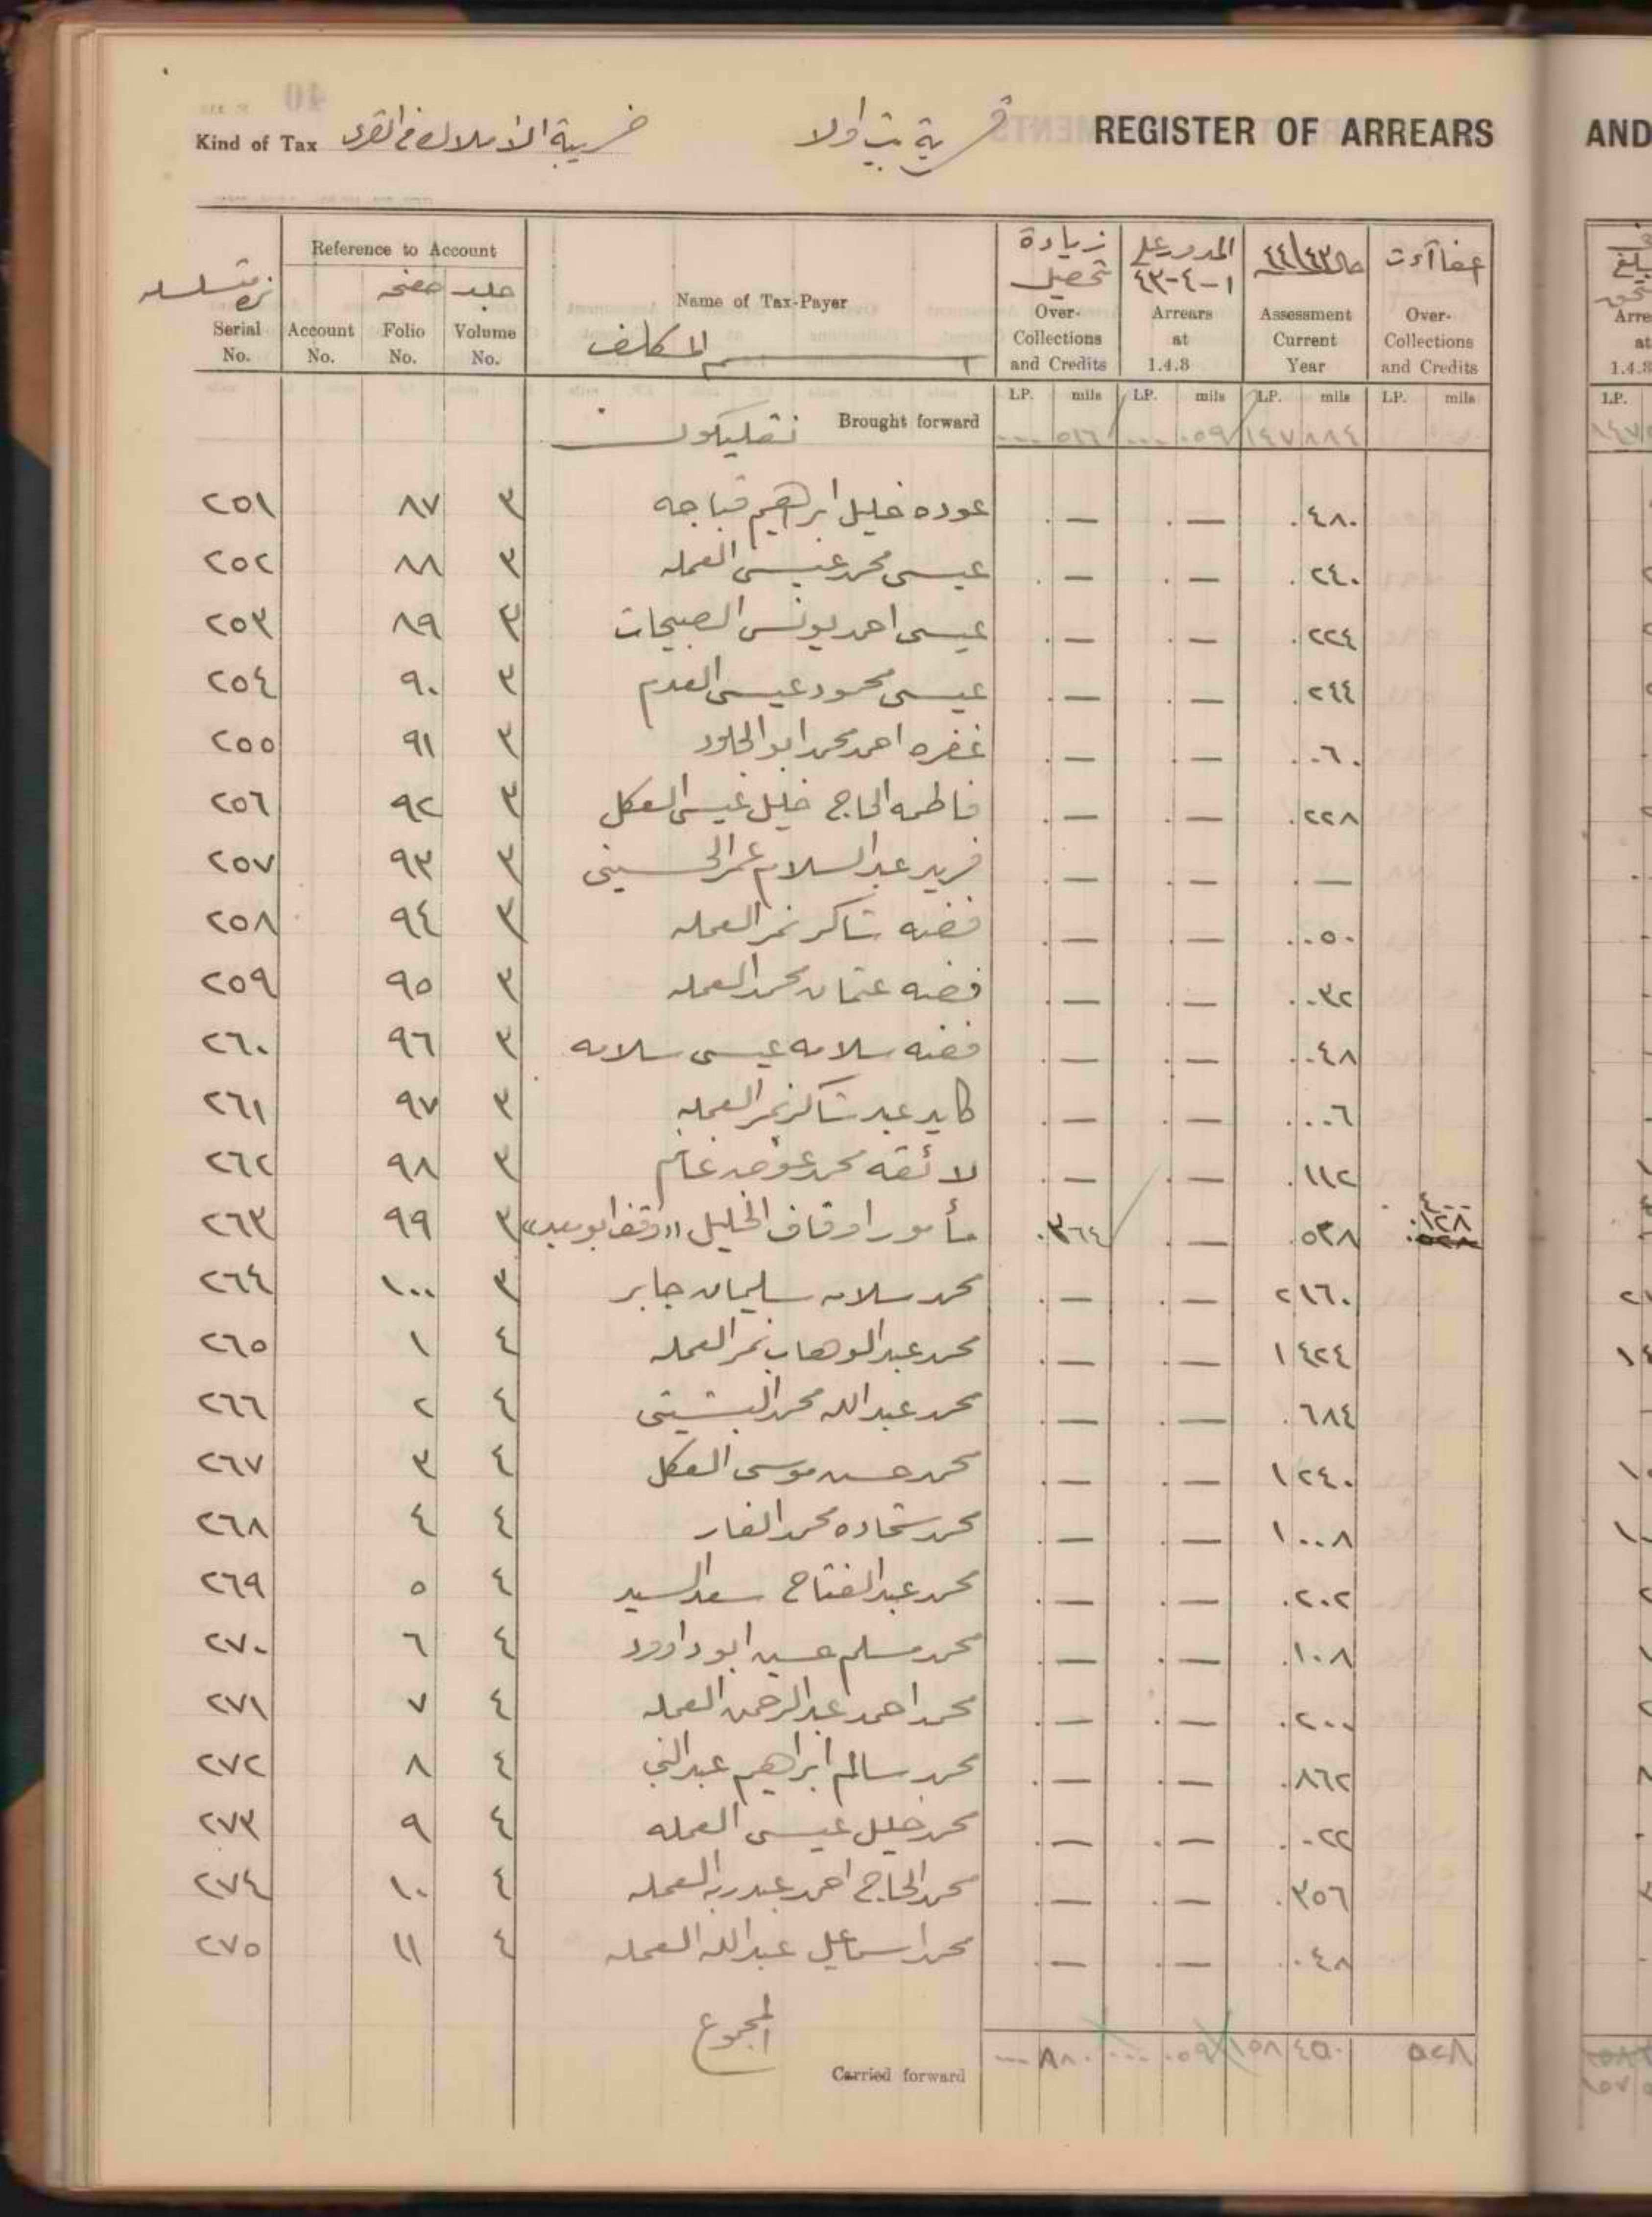 Kind of Tax ضريبة الأملاك في القرى قرية بيت اولا REGISTER OF ARREARS AND
Reference to Account
Serial No. Account No. صفحه Folio No. جلد Volume No. Name of Tax-Payer اسم المكلف زيادة تحصيل Over-Collections and Credits المدور على ١-٤-٤٣ Arrears at 1.4.8 حال ٤٤/٤٣ Assessment Current Year عفاآت Over-Collections and Credits
LP. mils LP. mils LP. mils LP. mils LP.
Brought forward ٥١٦ ٠٥٩ ١٤٧ ٨٨٤
٢٥١ ٨٧ ٣ عوده خليل ابراهيم قباجه . — . — . ٤٨٠
٢٥٢ ٨٨ ٣ عيسى محمد عيسى العمله . — . — . ٢٤٠
٢٥٣ ٨٩ ٣ عيسى احمد يونس الصبيحات . — . — . ٢٢٤
٢٥٤ ٩٠ ٣ عيسى محمود عيسى العدم . — . — . ٢٤٤
٢٥٥ ٩١ ٣ غفره احمد محمد ابو الحلاود . — . — . ٠٦٠
٢٥٦ ٩٢ ٣ فاطمه الحاج خليل عيسى العكل . — . — . ٢٢٨
٢٥٧ ٩٣ ٣ فريد عبد السلام عمر الحسيني . — . — . —
٢٥٨ ٩٤ ٣ فضه شاكر نمر العمله . — . — . ٠٥٠
٢٥٩ ٩٥ ٣ فضه عثمان محمد العمله . — . — . ٠٣٢
٢٦٠ ٩٦ ٣ فضه سلامه عيسى سلامه . — . — . ٠٤٨
٢٦١ ٩٧ ٣ كايد عبد شاكر نمر العمله . — . — . ٠٠٦
٢٦٢ ٩٨ ٣ لائقه محمد عوض غانم . — . — . ١١٢
٢٦٣ ٩٩ ٣ مأمور اوقاف الخليل "وقف ابو سعيد" . ٣٦٤ . — . ٥٢٨ ٤٠٠ . ١٢٨ . ٥٢٨
٢٦٤ ١٠٠ ٣ محمد سلامه سليمان جابر . — . — ٢ ١٦٠
٢٦٥ ١ ٤ محمد عبد الوهاب نمر العمله . — . — ١ ٤٢٤
٢٦٦ ٢ ٤ محمد عبد الله محمد البشيتي . — . — . ٦٨٤
٢٦٧ ٣ ٤ محمد حسن موسى العكل . — . — ١ ٢٤٠
٢٦٨ ٤ ٤ محمد شحاده محمد الفار . — . — ١ ٠٠٨
٢٦٩ ٥ ٤ محمد عبد الفتاح سعد السيد . — . — . ٢٠٢
٢٧٠ ٦ ٤ محمد مسلم حسين ابو داوود . — . — . ١٠٨
٢٧١ ٧ ٤ محمد احمد عبد الرحمن العمله . — . — . ٢٠٠
٢٧٢ ٨ ٤ محمد سالم ابراهيم عبد النبي . — . — . ٨٦٢
٢٧٣ ٩ ٤ محمد خليل عيسى العمله . — . — . ٠٢٢
٢٧٤ ١٠ ٤ محمد الحاج احمد عبد ربه العمله . — . — . ٣٥٦
٢٧٥ ١١ ٤ محمد اسماعيل عبد الله العمله . — . — . ٠٤٨
المجموع
Carried forward ٨٨٠ ٠٥٩ ١٥٨ ٤٥٠ ٥٢٨